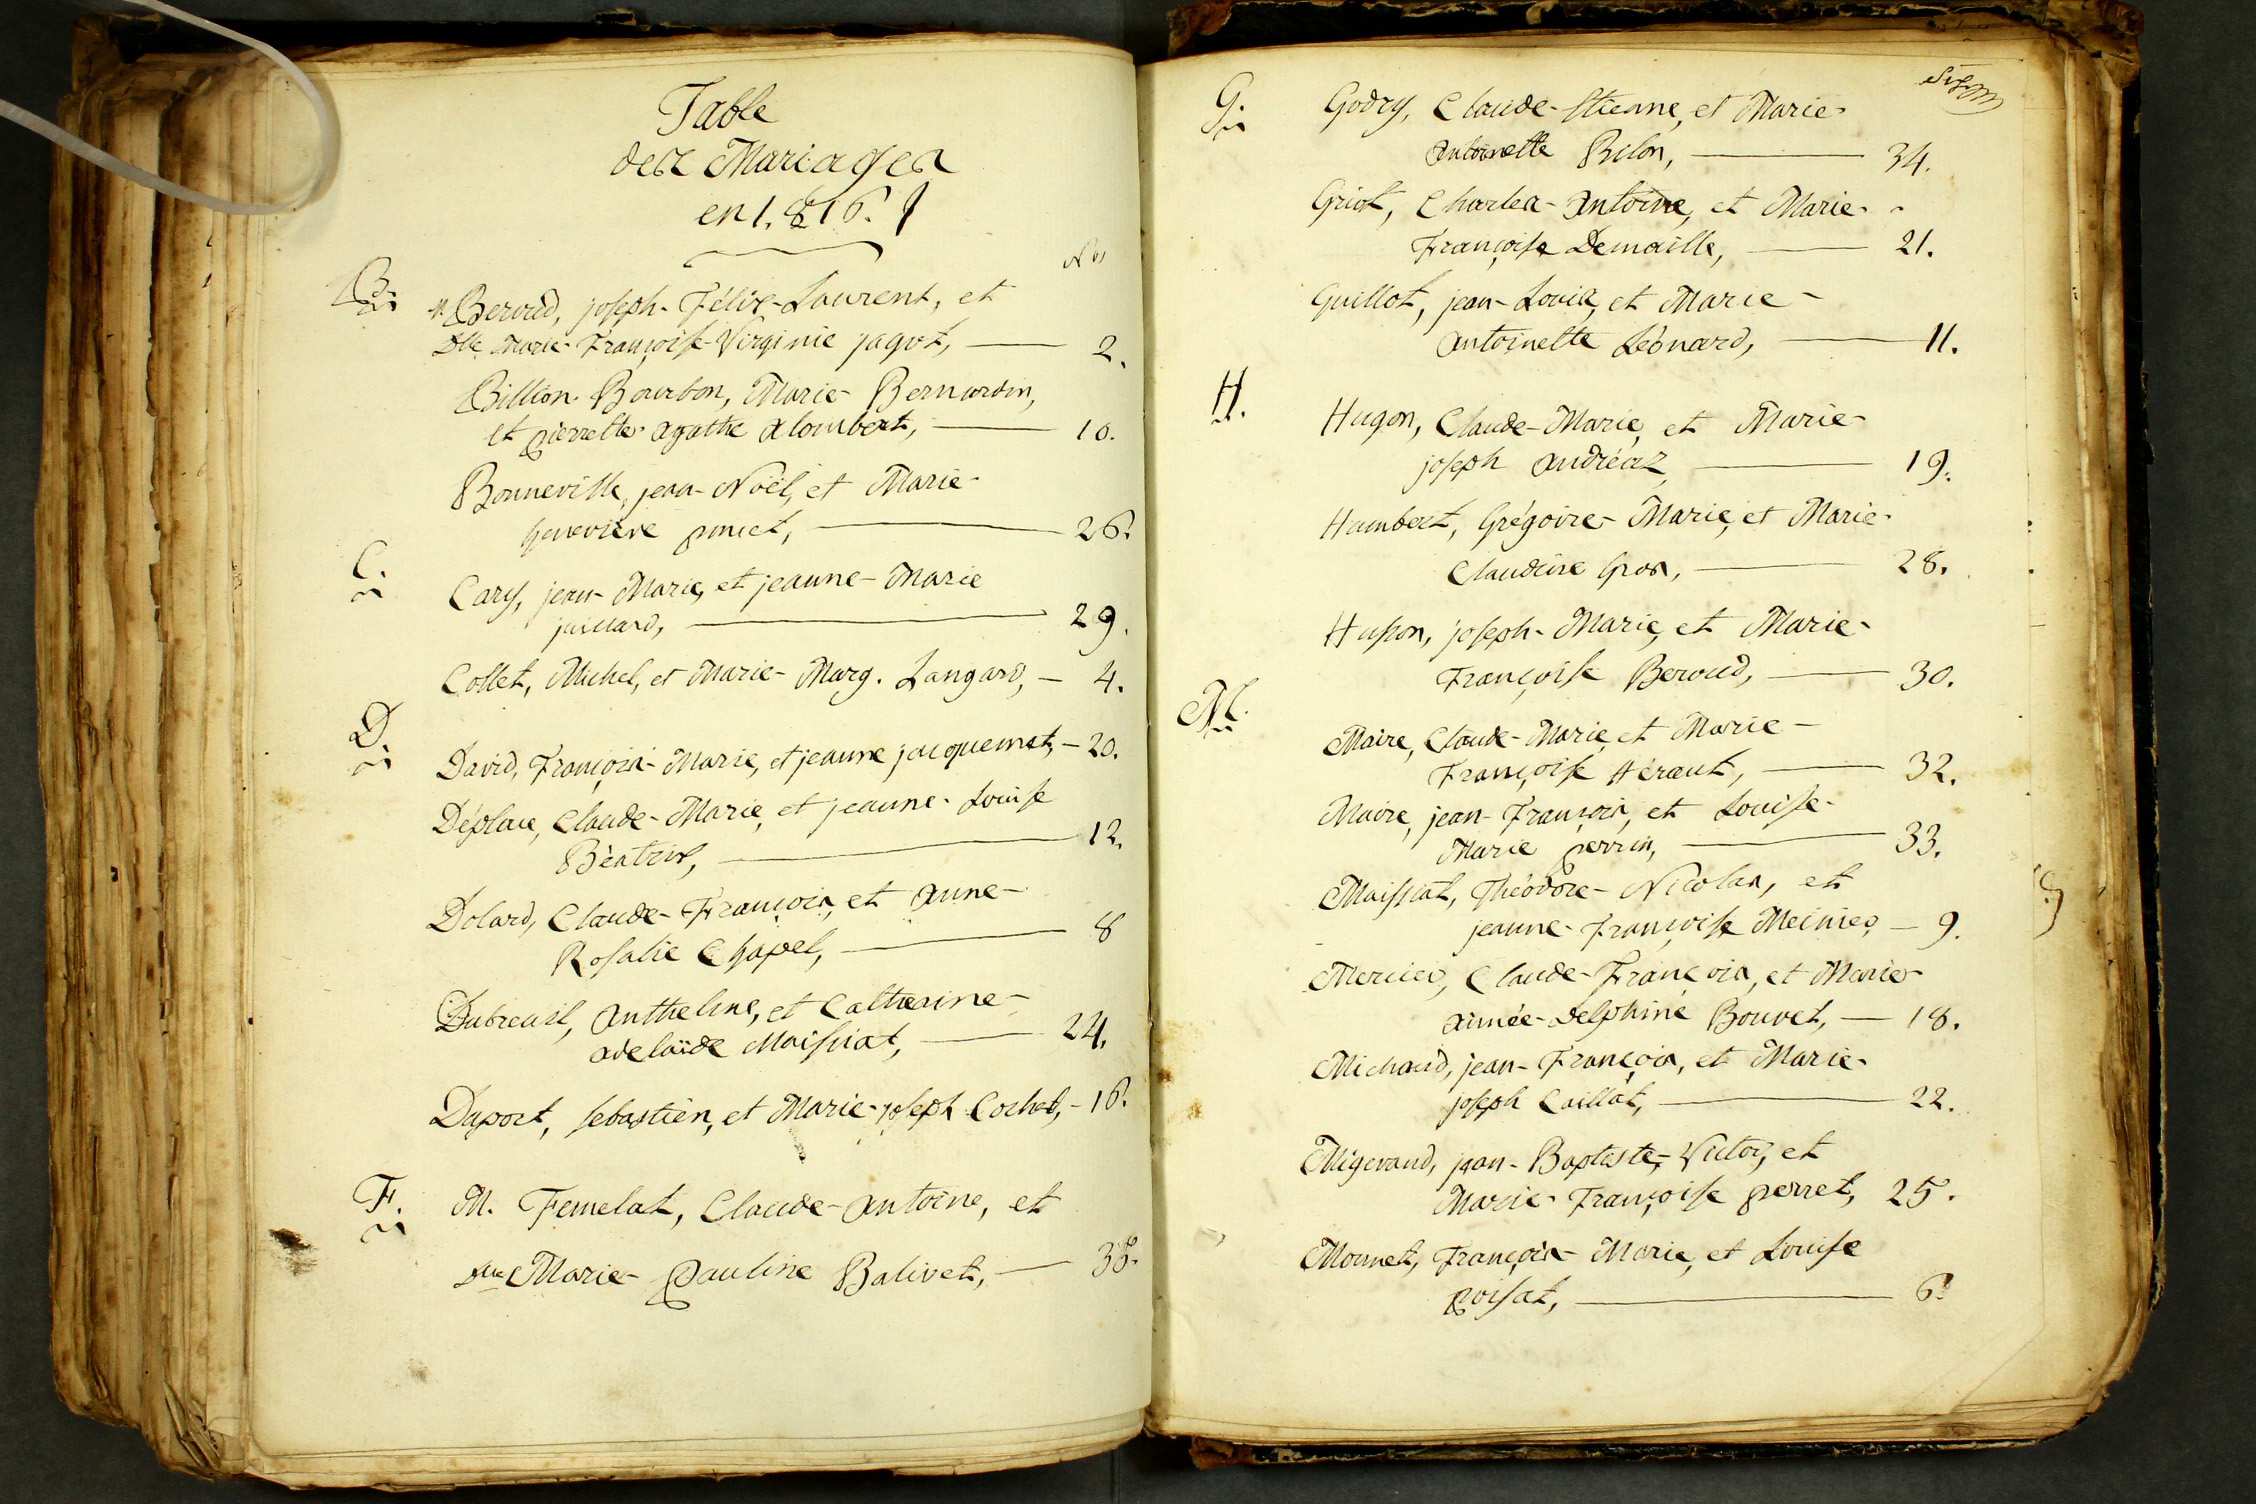 Table
des Mariages
en 1816.
Nos
B.
M. Beroud, joseph-Félix-Laurent, et
Dlle Marie-Françoise-Virginie jagot, — 2.
Billion-Bourbon, Marie-Bernardin,
et pierrette-agathe alombert, — 10.
Bonneville, jean-Noël, et Marie-
genevieve poncet, — 26.
C.
Cary, jean-Marie, et jeanne-Marie
juillard, — 29.
Collet, Michel, et Marie-Marg. Langard, — 4.
D.
David, François-Marie, et jeanne jacquemet, — 20.
Déplace, Claude-Marie, et jeanne-Louise
Béatrix, — 12.
Dolard, Claude-François, et anne-
Rosalie Chapel, — 8
Dubreuil, anthelme, et Catherine-
adelaïde Maissiat, — 24.
Duport, sebastien, et Marie-joseph Cochet, — 16.
F.
M. Femelat, Claude-antoine, et
Dlle Marie-Pauline Balivet, —
G.
Godry, Claude-Etienne, et Marie-
antoinette Bilon, — 34.
Griot, Charles-antoine, et Marie-
Françoise Demaille, — 21.
Guillot, jean-Louis, et Marie-
antoinette Léonard, — 11.
H.
Hugon, Claude-Marie, et Marie-
joseph andréaz, — 19.
Humbert, Grégoire-Marie, et Marie-
Claudine Gros, — 28.
Husson, joseph-Marie, et Marie-
Françoise Beroud, — 30.
M.
Maire, Claude-Marie, et Marie-
Françoise Héraut, — 32.
Maire, jean-François, et Louise-
Marie perrin, — 33.
Maissiat, Théodore-Nicolas, et
jeanne-Françoise Meinier, — 9.
Mercier, Claude-François, et Marie-
aimée-Delphine Bouvet, — 18.
Michaud, jean-François, et Marie-
joseph Caillat, — 22.
Migerand, jean-Baptiste-Victor, et
Marie-Françoise perret, 25.
Monnet, François-Marie, et Louise
poisat, — 6.